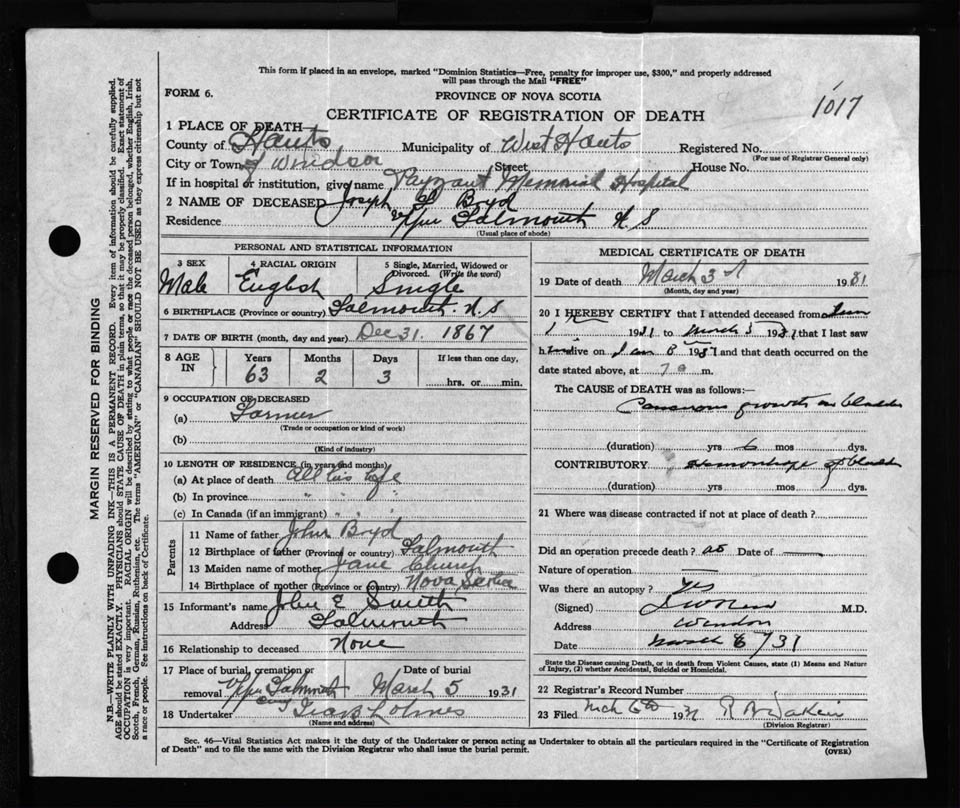 This form if placed in an envelope, marked "Dominion Statistics—Free, penalty for improper use, $300," and properly addressed
will pass through the Mail "FREE"
FORM 6.
PROVINCE OF NOVA SCOTIA
1017
CERTIFICATE OF REGISTRATION OF DEATH
1 PLACE OF DEATH—
County of Hants Municipality of West Hants Registered No.
(For use of Registrar General only)
City or Town of Windsor Street House No.
If in hospital or institution, give name Payzant Memorial Hospital
2 NAME OF DECEASED Joseph Boyd
Residence Falmouth N.S
(Usual place of abode)
PERSONAL AND STATISTICAL INFORMATION
3 SEX 4 RACIAL ORIGIN 5 Single, Married, Widowed or
Divorced. (Write the word)
Male English Single
6 BIRTHPLACE (Province or country) Falmouth N.S
7 DATE OF BIRTH (month, day and year) Dec 31. 1867
8 AGE IN Years Months Days If less than one day,
63 2 3 hrs. or min.
9 OCCUPATION OF DECEASED
(a) Farmer
(Trade or occupation or kind of work)
(b)
(Kind of industry)
10 LENGTH OF RESIDENCE (in years and months)
(a) At place of death All his life
(b) In province " " "
(c) In Canada (if an immigrant) " " "
Parents
11 Name of father John Boyd
12 Birthplace of father (Province or country) Falmouth
13 Maiden name of mother Jane
14 Birthplace of mother (Province or country) Nova Scotia
15 Informant's name John E Smith
Address Falmouth
16 Relationship to deceased None
17 Place of burial, cremation or Date of burial
removal Falmouth March 5 1931
18 Undertaker
(Name and address)
MEDICAL CERTIFICATE OF DEATH
19 Date of death March 3 1931
(Month, day and year)
20 I HEREBY CERTIFY that I attended deceased from
1931 to March 3 1931 that I last saw
h alive on 1931 and that death occurred on
date stated above, at 7 a m.
The CAUSE OF DEATH was as follows:—
Cancerous growth in bladder
(duration) yrs 6 mos dys.
CONTRIBUTORY Hemorrhage of bladder
(duration) yrs. mos. dys.
21 Where was disease contracted if not at place of death?
Did an operation precede death? no Date of —
Nature of operation —
Was there an autopsy? yes
(Signed) M.D.
Address Windsor
Date March 6/31
State the Disease causing Death, or in death from Violent Causes, state (1) Means and Nature
of Injury, (2) whether Accidental, Suicidal or Homicidal.
22 Registrar's Record Number
23 Filed Mch 6th 1931
(Division Registrar)
Sec. 46—Vital Statistics Act makes it the duty of the Undertaker or person acting as Undertaker to obtain all the particulars required in the "Certificate of Registration
of Death" and to file the same with the Division Registrar who shall issue the burial permit. (OVER)
MARGIN RESERVED FOR BINDING
N.B.—WRITE PLAINLY WITH UNFADING INK—THIS IS A PERMANENT RECORD. Every item of information should be carefully supplied.
AGE should be stated EXACTLY. PHYSICIANS should STATE CAUSE OF DEATH in plain terms, so that it may be properly classified. Exact statement of
OCCUPATION is very important. RACIAL ORIGIN will be described by stating to what people or race the deceased person belonged, whether English, Irish,
Scotch, French, German, Russian, Ruthenian, etc. The terms "AMERICAN" or "CANADIAN" SHOULD NOT BE USED as they express citizenship but not
a race or people. See instructions on back of Certificate.